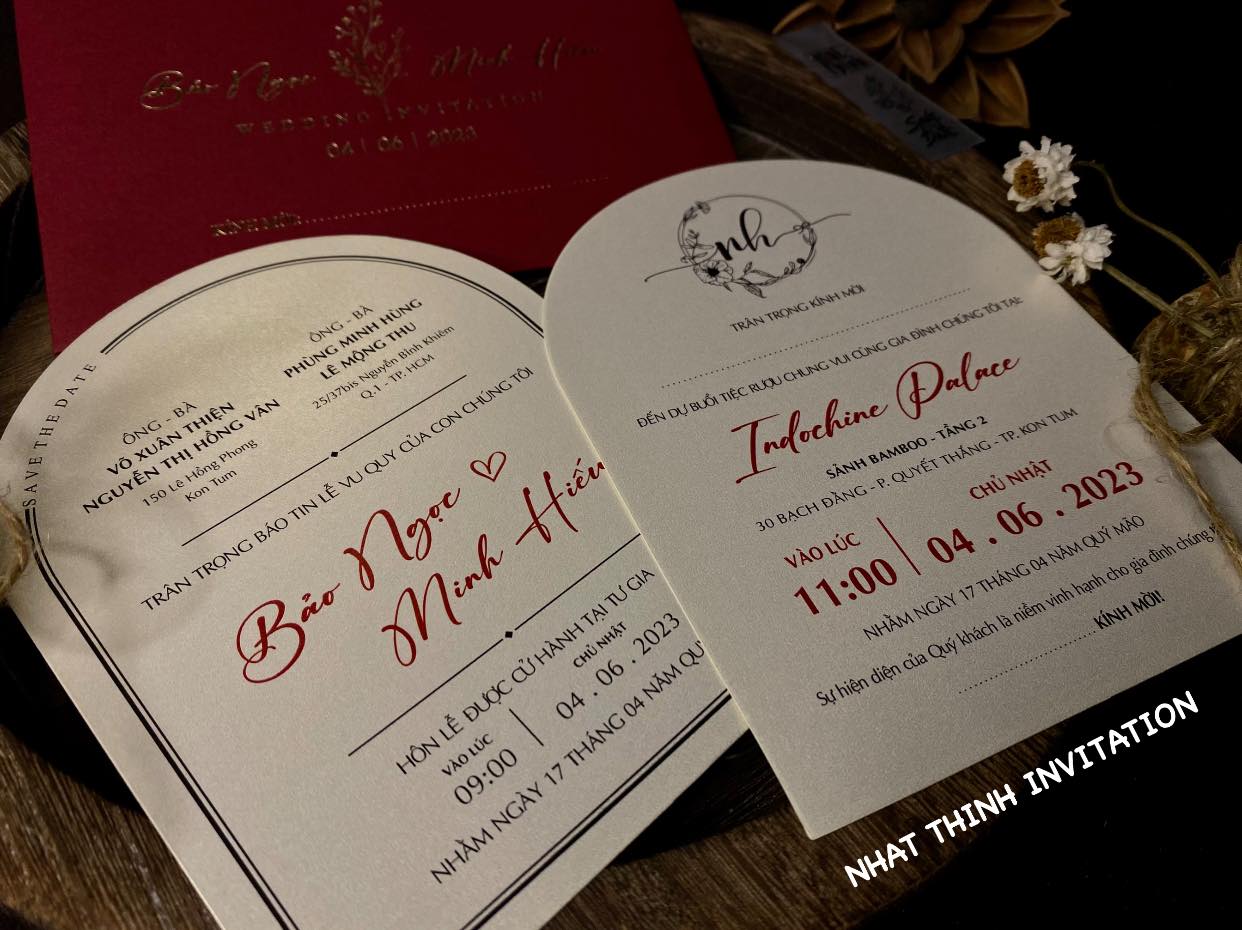 Bảo Ngọc
Minh Hiếu
WEDDING INVITATION
04 | 06 | 2023
KÍNH MỜI:
SAVE THE DATE
ÔNG - BÀ
VÕ XUÂN THIỆN
NGUYỄN THỊ HỒNG VÂN
150 Lê Hồng Phong
Kon Tum
ÔNG - BÀ
PHÙNG MINH HÙNG
LÊ MỘNG THU
25/37bis Nguyễn Bỉnh Khiêm
Q.1 - TP. HCM
TRÂN TRỌNG BÁO TIN LỄ VU QUY CỦA CON CHÚNG TÔI
Bảo Ngọc ♡
Minh Hiếu
HÔN LỄ ĐƯỢC CỬ HÀNH TẠI TƯ GIA
VÀO LÚC
09:00
CHỦ NHẬT
04 . 06 . 2023
NHẰM NGÀY 17 THÁNG 04 NĂM QU
nh
TRÂN TRỌNG KÍNH MỜI
ĐẾN DỰ BUỔI TIỆC RƯỢU CHUNG VUI CÙNG GIA ĐÌNH CHÚNG TÔI TẠI:
Indochine Palace
SẢNH BAMBOO - TẦNG 2
30 BẠCH ĐẰNG - P. QUYẾT THẮNG - TP. KON TUM
VÀO LÚC
11:00
CHỦ NHẬT
04 . 06 . 2023
NHẰM NGÀY 17 THÁNG 04 NĂM QUÝ MÃO
Sự hiện diện của Quý khách là niềm vinh hạnh cho gia đình chúng
KÍNH MỜI!
NHAT THINH INVITATION